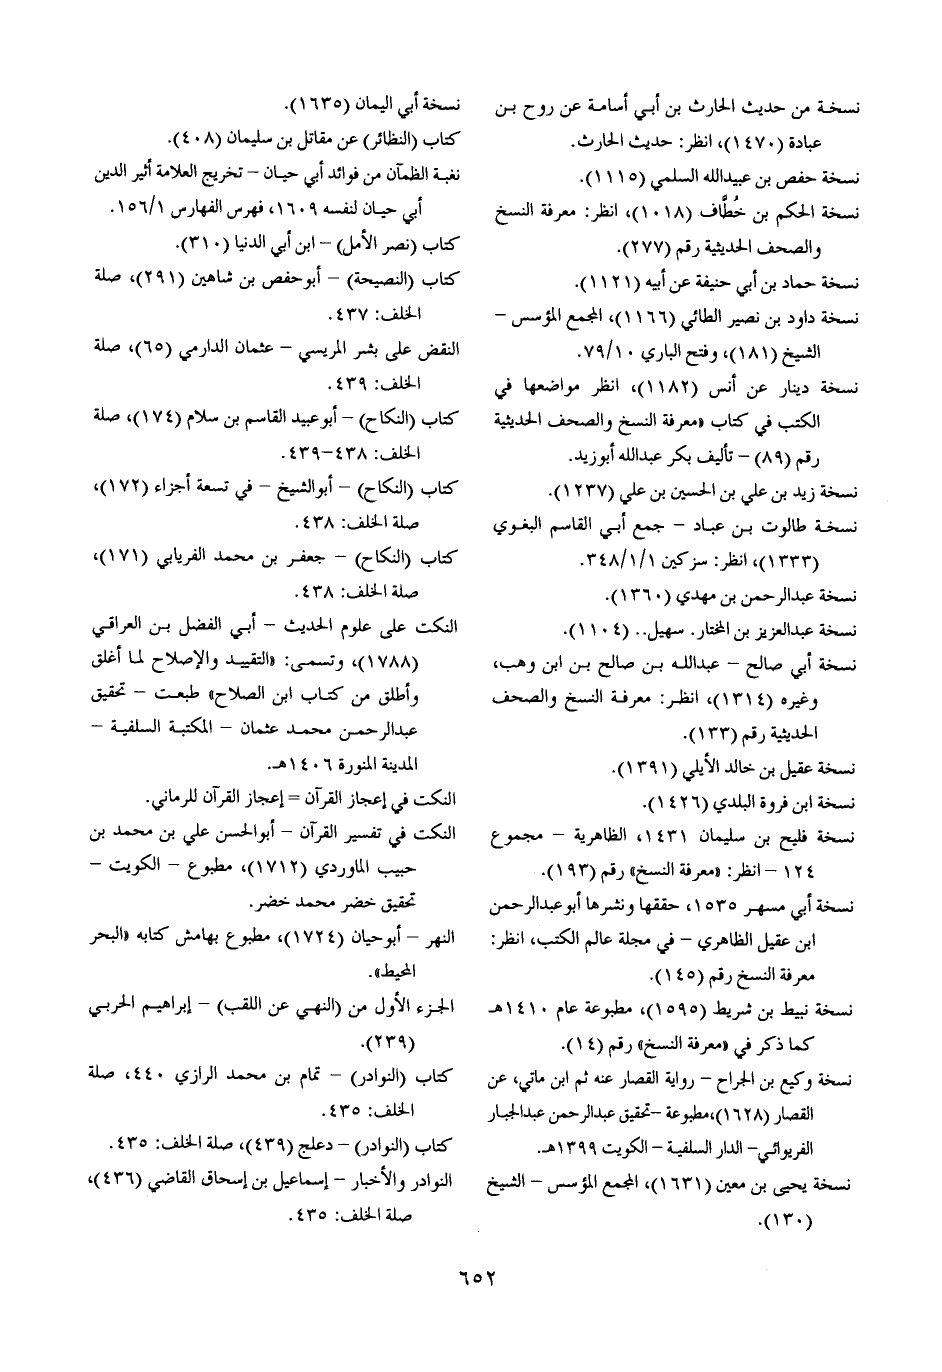 نسخة من حديث الحارث بن أبي أسامة عن روح بن
عبادة (١٤٧٠)، انظر: حديث الحارث.
نسخة حفص بن عبيدالله السلمي (١١١٥).
نسخة الحكم بن خُطَّاف (١٠١٨)، انظر: معرفة النسخ
والصحف الحديثية رقم (٢٧٧).
نسخة حماد بن أبي حنيفة عن أبيه (١١٢١).
نسخة داود بن نصير الطائي (١١٦٦)، المجمع المؤسس –
الشيخ (١٨١)، وفتح الباري ٧٩/١٠.
نسخة دينار عن أنس (١١٨٢)، انظر مواضعها في
الكتب في كتاب «معرفة النسخ والصحف الحديثية
رقم (٨٩) – تأليف بكر عبدالله أبوزيد.
نسخة زيد بن علي بن الحسين بن علي (١٢٣٧).
نسخة طالوت بن عباد – جمع أبي القاسم البغوي
(١٣٣٣)، انظر: سزكين ٣٤٨/١/١.
نسخة عبدالرحمن بن مهدي (١٣٦٠).
نسخة عبدالعزيز بن المختار. سهيل.. (١١٠٤).
نسخة أبي صالح – عبدالله بن صالح بن ابن وهب،
وغيره (١٣١٤)، انظر: معرفة النسخ والصحف
الحديثية رقم (١٣٣).
نسخة عقيل بن خالد الأيلي (١٣٩١).
نسخة ابن فروة البلدي (١٤٢٦).
نسخة فليح بن سليمان ١٤٣١، الظاهرية – مجموع
١٢٤ – انظر: «معرفة النسخ» رقم (١٩٣).
نسخة أبي مسهر ١٥٣٥، حققها ونشرها أبو عبدالرحمن
ابن عقيل الظاهري – في مجلة عالم الكتب، انظر:
معرفة النسخ رقم (١٤٥).
نسخة نبيط بن شريط (١٥٩٥)، مطبوعة عام ١٤١٠هـ
كما ذكر في «معرفة النسخ» رقم (١٤).
نسخة وكيع بن الجراح – رواية القصار عنه ثم ابن ماتي، عن
القصار (١٦٢٨)،مطبوعة –تحقيق عبدالرحمن عبدالجبار
الفريوائي– الدار السلفية – الكويت ١٣٩٩هـ.
نسخة يحيى بن معين (١٦٣١)، المجمع المؤسس – الشيخ
(١٣٠).
نسخة أبي اليمان (١٦٣٥).
كتاب (النظائر) عن مقاتل بن سليمان (٤٠٨).
نغبة الظمآن من فوائد أبي حيان – تخريج العلامة أثير الدين
أبي حيان لنفسه ١٦٠٩، فهرس الفهارس ١٥٦/١.
كتاب (نصر الأمل) – ابن أبي الدنيا (٣١٠).
كتاب (النصيحة) – أبوحفص بن شاهين (٢٩١)، صلة
الخلف: ٤٣٧.
النقض على بشر المريسي – عثمان الدارمي (٦٥)، صلة
الخلف: ٤٣٩.
كتاب (النكاح) – أبوعبيد القاسم بن سلام (١٧٤)، صلة
الخلف: ٤٣٨–٤٣٩.
كتاب (النكاح) – أبوالشيخ – في تسعة أجزاء (١٧٢)،
صلة الخلف: ٤٣٨.
كتاب (النكاح) – جعفر بن محمد الفريابي (١٧١)،
صلة الخلف: ٤٣٨.
النكت على علوم الحديث – أبي الفضل بن العراقي
(١٧٨٨)، وتسمى: «التقييد والإصلاح لما أغلق
وأطلق من كتاب ابن الصلاح» طبعت – تحقيق
عبدالرحمن محمد عثمان – المكتبة السلفية –
المدينة المنورة ١٤٠٦هـ.
النكت في إعجاز القرآن = إعجاز القرآن للرماني.
النكت في تفسير القرآن – أبوالحسن علي بن محمد بن
حبيب الماوردي (١٧١٢)، مطبوع – الكويت –
تحقيق خضر محمد خضر.
النهر – أبوحيان (١٧٢٤)، مطبوع بهامش كتابه «البحر
المحيط».
الجزء الأول من (النهي عن اللقب) – إبراهيم الحربي
(٢٣٩).
كتاب (النوادر) – تمام بن محمد الرازي ٤٤٠، صلة
الخلف: ٤٣٥.
كتاب (النوادر) – دعلج (٤٣٩)، صلة الخلف: ٤٣٥.
النوادر والأخبار – إسماعيل بن إسحاق القاضي (٤٣٦)،
صلة الخلف: ٤٣٥.
٦٥٢